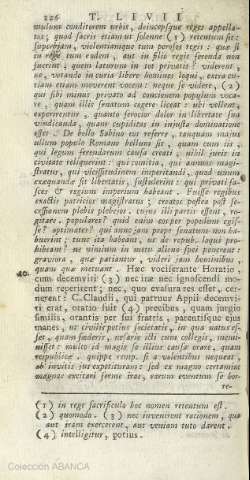 226 T. LIVII
mulum conditorem urbis, deincepsque reges appella-
tos; quod sacris etiamst solemne (1) retentum sit:
superbiam, violentiamque tum perosos regis: quæ si
in rege tum eodem, aut in filio regis ferenda non
fuerint, quem laturum in tot privatis? viderent,
ne, vetando in curia libere homines loqui, extra cu-
riam etiam moverent vocem: neque se videre, (2) qui
sibi minus privato ad concionem populum voca-
re, quam illis senatum cogere liceat: ubi vellent,
experirentur, quanto ferocior dolor in libertate sua
vindicanda, quam cupiditas in injusta dominatione
esset. De bello Sabino eos referre, tanquam majus
ullum populo Romano bellum sit, quam cum iis,
qui legum ferendarum causa creati, nihil juris in
civitate reliquerint: qui comitia, qui annuos magi-
stratus, qui vicissitudinem imperitandi, quod unum
exæquandæ sit libertatis, sustulerint: qui privati fa-
sces & regium imperium habeant. Fuisse regibus
exactis patricios magistratus; creatos postea post se-
cessionem plebis plebejos. cujus illi partis essent, ro-
gitare. populares? quid enim eorum per populum egis-
se? optimates? qui anno jam prope senatum non ha-
buerint; tunc ita habeant, ut de republ. loqui pro-
hibeant? ne nimium in metu alieno spei ponerent:
graviora, quæ patiantur, videri jam hominibus,
quam quæ metuant. Hæc vociferante Horatio,
40. cum decemviri (3) nec iræ nec ignoscendi mo-
dum reperirent; nec, quo evasura res esset, cer-
nerent: C. Claudii, qui patruus Appii decemvi-
ri erat, oratio fuit (4) precibus, quam jurgio
similis, orantis per sui fratris, parentisque ejus
manes, ut civilis potius societatis, in qua natus es-
set, quam fœderis, nefarie icti cum collegis, memi-
nisset: multo id magis se illius causa orare, quam
reipublicæ. quippe remp. si a volentibus nequeat,
ab invitis jus expetituram: sed ex magno certamine
magnas excitari ferme iras, earum eventum se hor-
re-
(1) in rege sacrificulo hoc nomen retentum est.
(2) quomodo. (3) nec invenirent rationem, qua
aut iram exercerent, aut veniam tuto darent.
(4) intelligitur, potius.
Colección ABANCA